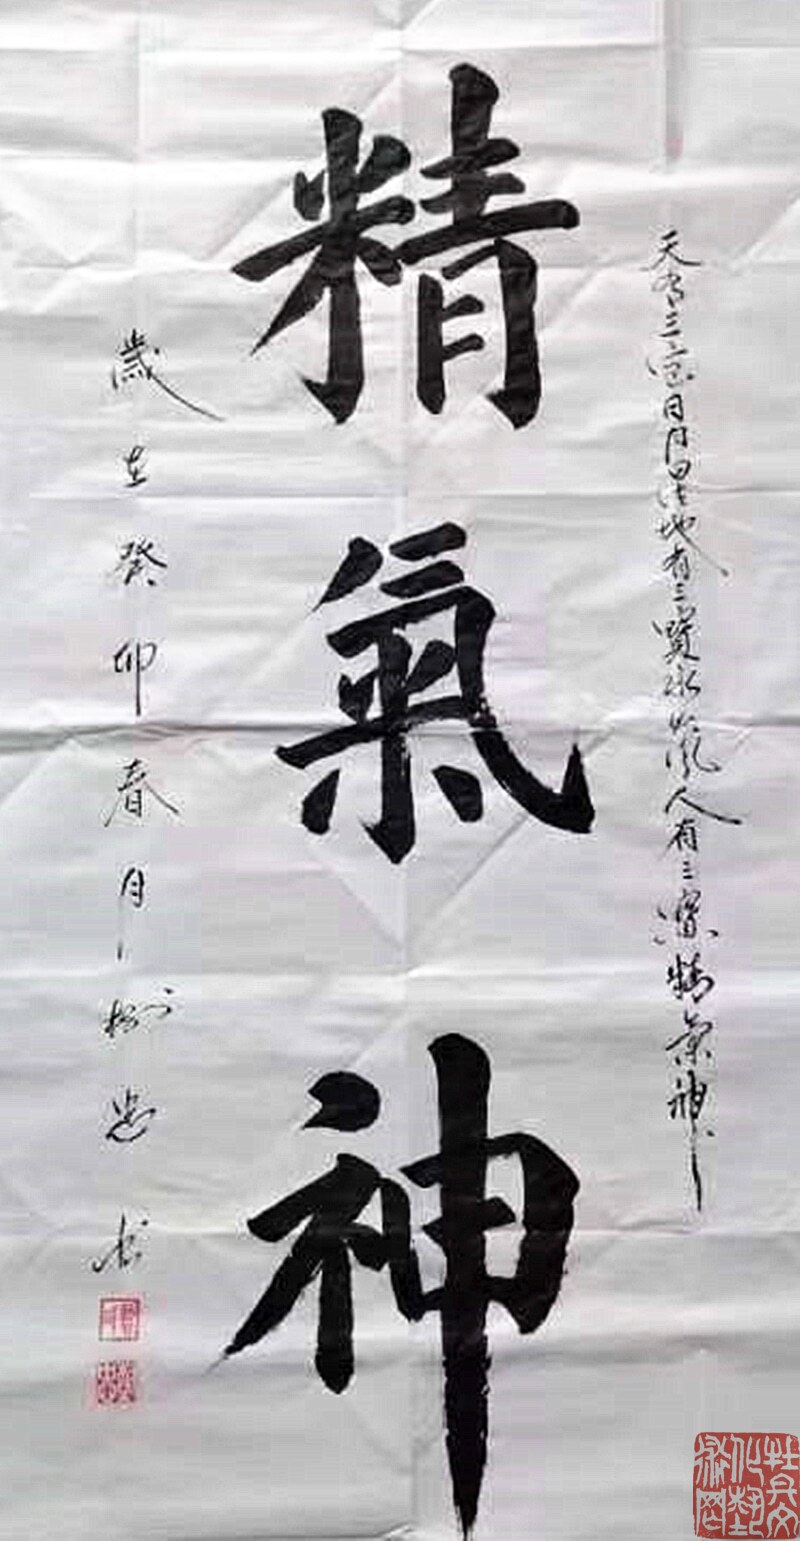 天有三宝日月星地有三寶水火風人有三寶精氣神
精氣神
歲在癸卯春月
书